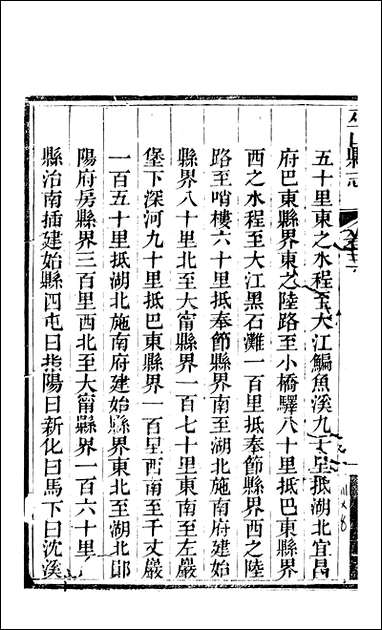 巫山縣志
五十里東之水程至大江鯿魚溪九十里抵湖北宜昌
府巴東縣界東之陸路至小橋驛八十里抵巴東縣界
西之水程至大江黑石灘一百里抵奉節縣界西之陸
路至哨樓六十里抵奉節縣界南至湖北施南府建始
縣界八十里北至大甯縣界一百七十里東南至左巖
堡下深河九十里抵巴東縣界一百里西南至千丈巖
一百五十里抵湖北施南府建始縣界東北至湖北鄖
陽府房縣界三百里西北至大甯縣界一百六十里
縣治南插建始縣四屯曰指陽曰新化曰馬下曰沈溪